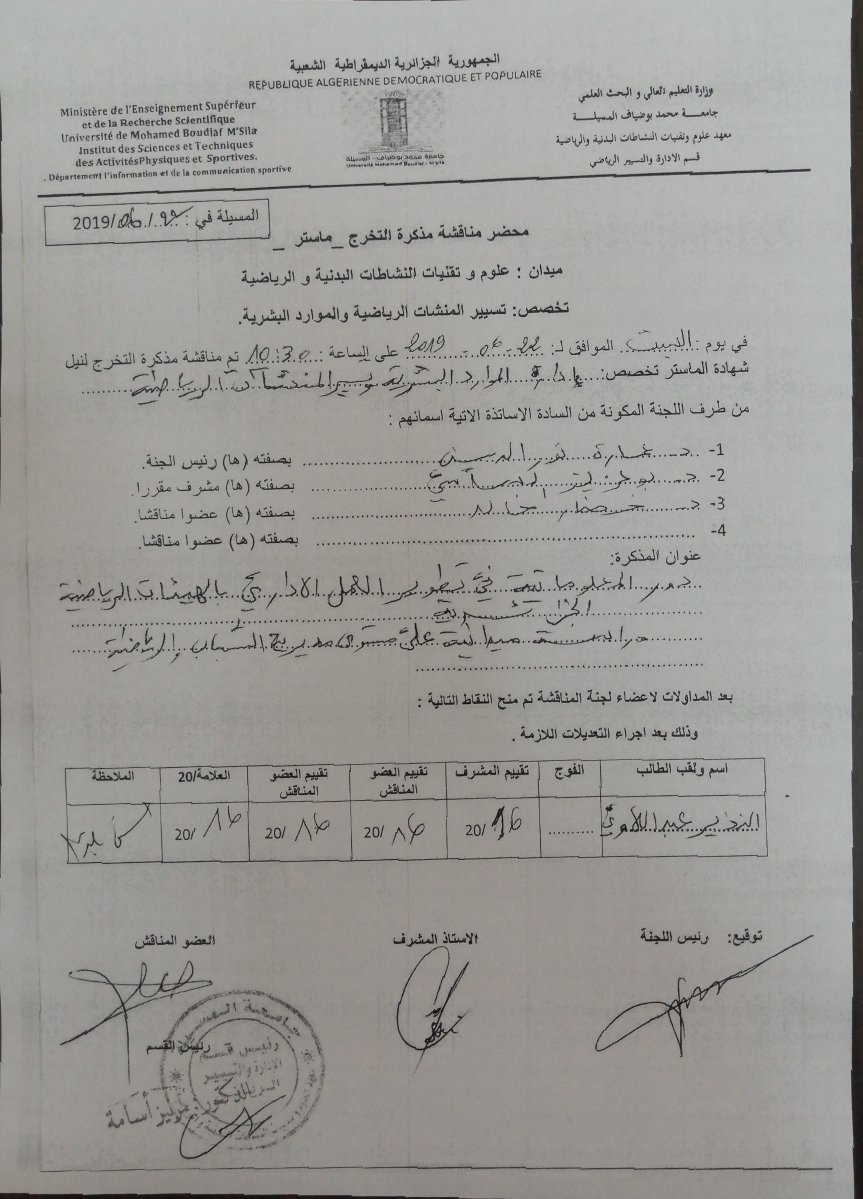 الجمهورية الجزائرية الديمقراطية الشعبية
REPUBLIQUE ALGERIENNE DEMOCRATIQUE ET POPULAIRE
Ministère de l'Enseignement Supérieur
et de la Recherche Scientifique
Université de Mohamed Boudiaf M'Sila
Institut des Sciences et Techniques
des ActivitésPhysiques et Sportives.
. Département l'information et de la communication sportive
جامعة محمد بوضياف - المسيلة
Université Mohamed Boudiaf - M'sila
وزارة التعليم العالي و البحث العلمي
جامعة محمد بوضياف المسيلة
معهد علوم وتقنيات النشاطات البدنية والرياضية
قسم الادارة والتسيير الرياضي
المسيلة في : 22 / 06 /2019
محضر مناقشة مذكرة التخرج _ماستر _
ميدان : علوم و تقنيات النشاطات البدنية و الرياضية
تخصص: تسيير المنشات الرياضية والموارد البشرية.
في يوم : السبت الموافق لـ: 22 - 06 - 2019 على الساعة : 10:30 تم مناقشة مذكرة التخرج لنيل
شهادة الماستر تخصص: إدارة الموارد البشرية وتسيير المنشآت الرياضية
من طرف اللجنة المكونة من السادة الاساتذة الاتية اسمائهم :
1- د. نور الدين بصفته (ها) رئيس الجنة.
2- د. بصفته (ها) مشرف مقررا.
3- د. بصفته (ها) عضوا مناقشا.
4- بصفته (ها) عضوا مناقشا.
عنوان المذكرة:
دور المعلوماتية في تطوير العمل الاداري بالهيئات الرياضية
الجزائرية
دراسة ميدانية على مستوى مديرية الشباب والرياضة
بعد المداولات لاعضاء لجنة المناقشة تم منح النقاط التالية :
وذلك بعد اجراء التعديلات اللازمة .
اسم ولقب الطالب الفوج تقييم المشرف تقييم العضو المناقش تقييم العضو المناقش العلامة/20 الملاحظة
عبد اللاوي 16 /20 16 /20 16 /20 16 /20
توقيع: رئيس اللجنة الاستاذ المشرف العضو المناقش
رئيس القسم
جامعة المسيلة
رئيس قسم
الإدارة والتسيير
أسامة